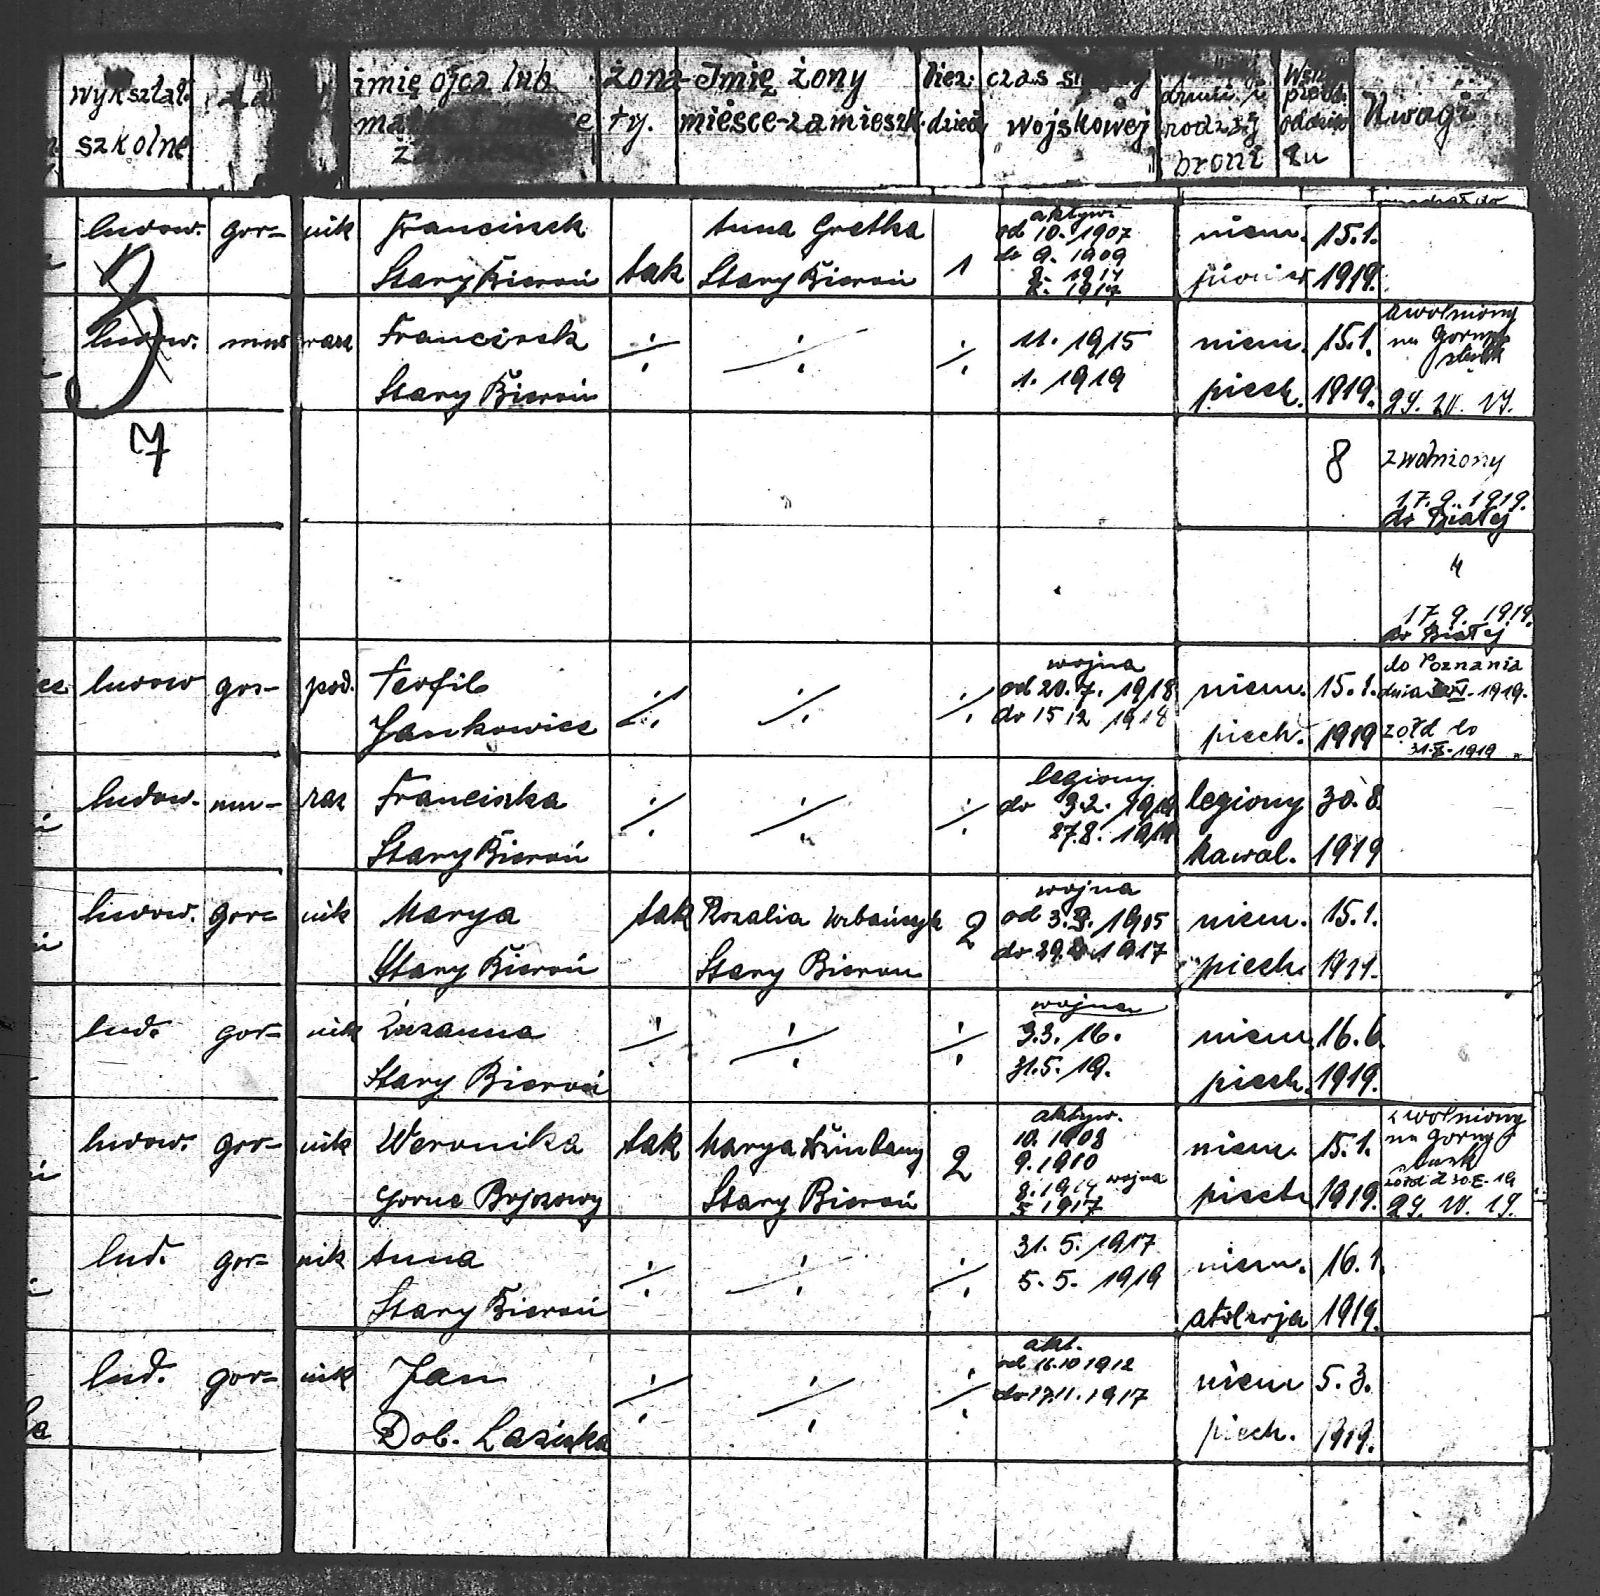 wykształ. szkolne
imię ojca lub
żona-ty.
Imię żony miejsce-zamieszk.
licz. dzieci
czas
wojskowej
rodzaj broni
Uwagi
ludow. gor= nik Franciszek Anna Gretka aktywn. niem. 15.1.
od 10. 1907
do 9. 1909
Stary Bieruń tak Stary Bieruń 1 8. 1914 pionier 1919.
1917
ludow. mu rarz Franciszek ·/· ·/· ·/· 11. 1915 niem. 15.1. zwolniony
na Gorny
Stary Bieruń 1. 1919 piech. 1919.
7
8 zwolniony
17. 9. 1919.
do Białej
"
17. 9. 1919.
do Białej
ludow gos- pod. Teofil ·/· ·/· ·/· wojna niem. 15.1. do Poznania
od 20. 7. 1918 dnia 1919.
Jankowice do 15 12 1918 piech. 1919 żołd do
31.X.1919
ludow. mu- raz Franciszka ·/· ·/· ·/· legiony legiony 30.8.
do 3.2. 1919
Stary Bieruń 27.8. 1919 kawal. 1919
ludow. gor= nik Marya tak Rozalia Urbańczyk 2 wojna niem. 15.1.
od 3.9. 1915
Stary Bieruń Stary Bierun do 29. 1917 piech.
lud. gor= nik Zuzanna ·/· ·/· ·/· wojna niem. 16.6.
3.3. 16.
Stary Bieruń 31.5. 19. piech. 1919.
ludow. gor- nik Weronika tak Marya 2 aktyw. niem. 15.1. zwolniony
10. 1908 na Gorny
9. 1910
Gorne Bojszowy Stary Bieruń 8. 1914 wojna piech 1919.
5 1917
lud. gor- nik Anna ·/· ·/· ·/· 31. 5. 1917 niem. 16.1.
Stary Bieruń 5. 5. 1919 atolerja 1919.
lud. gor= nik Jan ·/· ·/· ·/· akt. niem 5.3.
od 16.10 1912
do 17.11. 1917
Dob. Laziska piech. 1919.